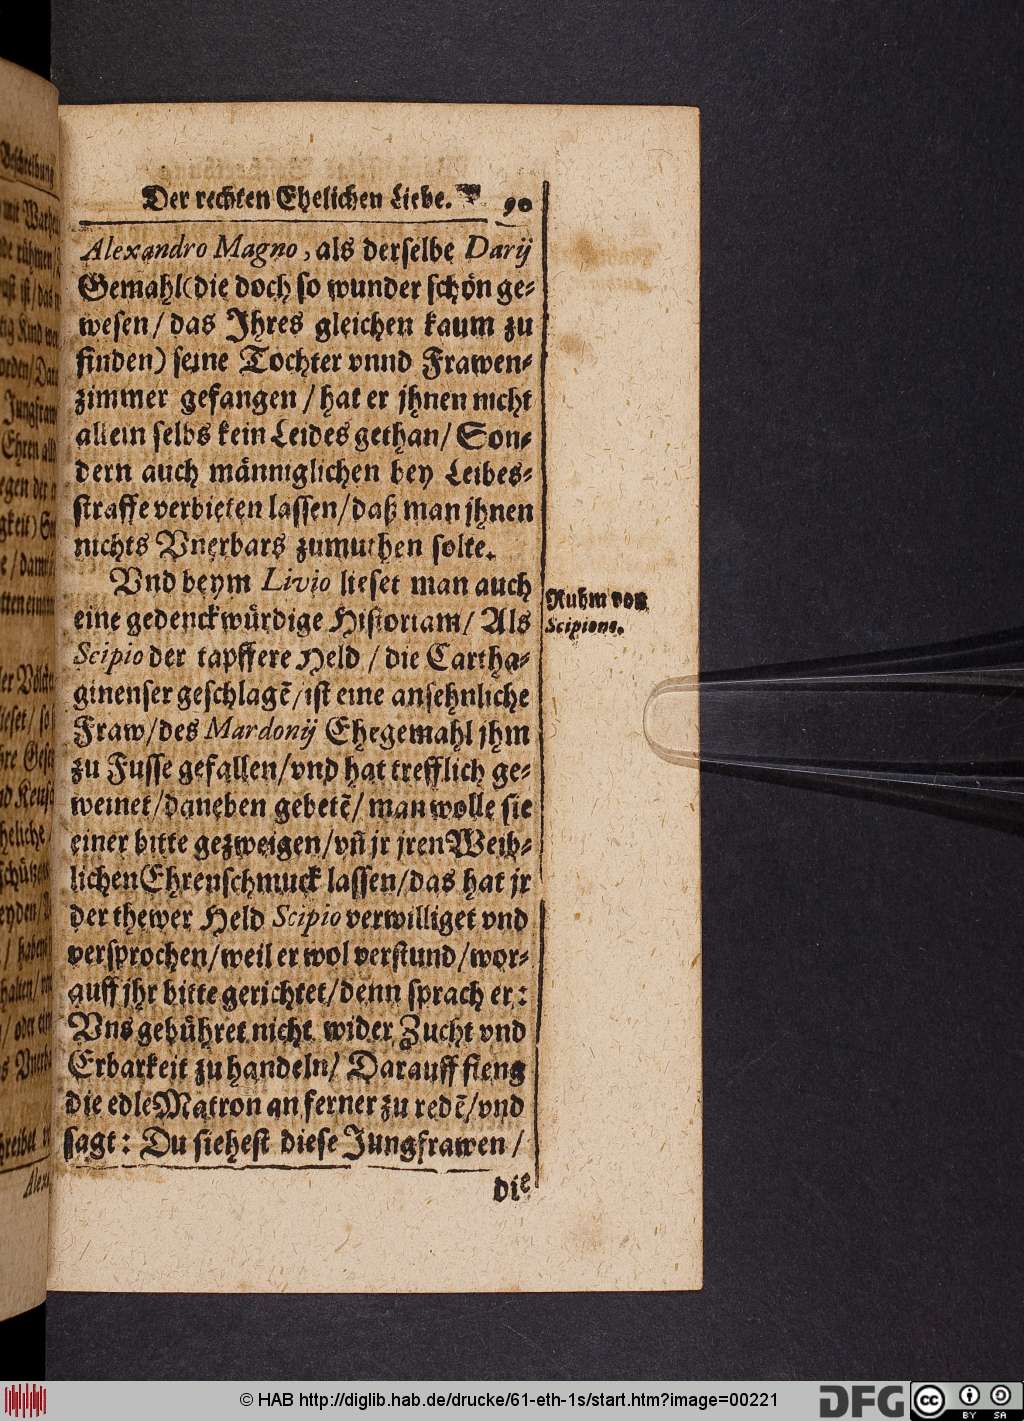 Der rechten Ehelichen Liebe. 90
Alexandro Magno, als derselbe Darij
Gemahl (die doch so wunder schön ge-
wesen / das Ihres gleichen kaum zu
finden) seine Tochter vnnd Frawen-
zimmer gefangen / hat er jhnen nicht
allein selbs kein Leides gethan / Son-
dern auch männiglichen bey Leibes-
straffe verbieten lassen / daß man jhnen
nichts Vnerbars zumuthen solte.
Vnd beym Livio lieset man auch
eine gedenckwürdige Historiam / Als
Scipio der tapffere Held / die Cartha-
ginenser geschlagē / ist eine ansehnliche
Fraw / des Mardonij Ehegemahl jhm
zu Fusse gefallen / vnd hat trefflich ge-
weinet / daneben gebetē / man wolle sie
einer bitte gezweigen / vn̄ jr jren Weib-
lichen Ehrenschmuck lassen / das hat jr
der thewer Held Scipio verwilliget vnd
versprochen / weil er wol verstund / wor-
auff jhr bitte gerichtet / denn sprach er:
Vns gebühret nicht wider Zucht vnd
Erbarkeit zu handeln / Darauff fieng
die edle Matron an ferner zu redē / vnd
sagt: Du siehest diese Jungfrawen /
die
Ruhm von
Scipione.
© HAB http://diglib.hab.de/drucke/61-eth-1s/start.htm?image=00221
DFG
cc
BY SA